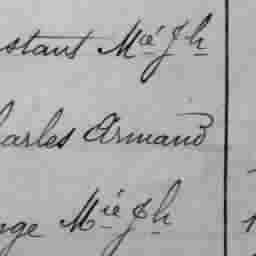 stant Mié Jh
harles Armand
nge Mie Jh